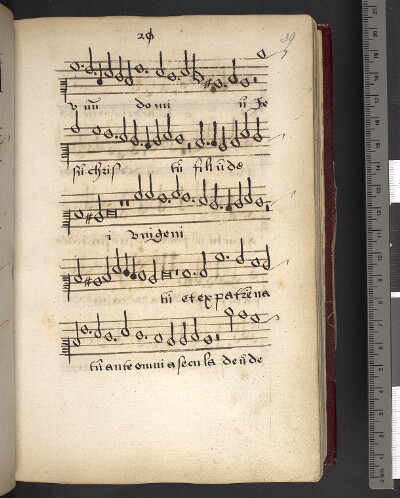 29
v nū do mi n Je
sū chris tū fi li ū de
i vnigeni
tū et ex patre na
tū ante omni a secu la de ū de